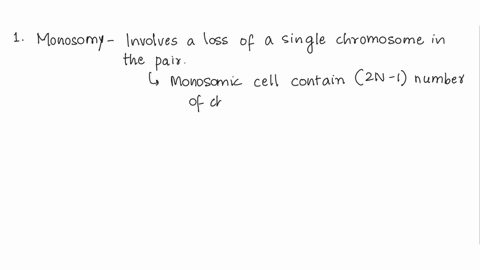 1. Monosomy - Involves a loss of a single chromosome in
the pair.
↳ Monosomic cell contain (2N-1) number
of ch